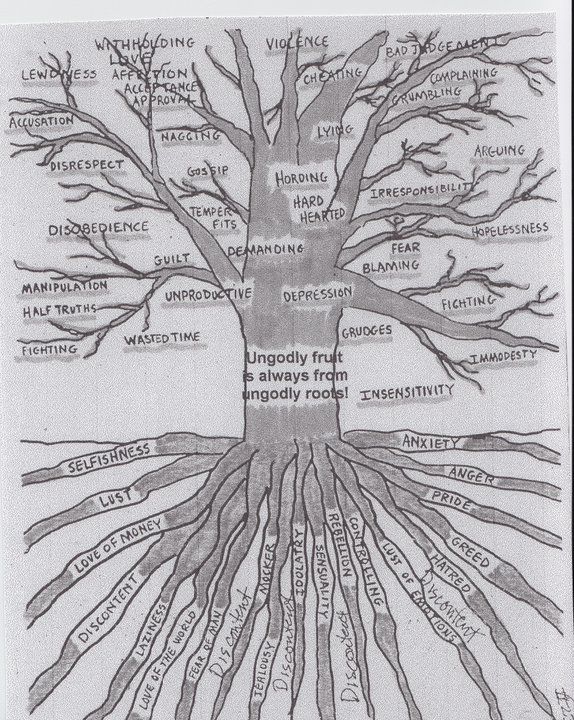 WITHHOLDING
LOVE
AFFECTION
ACCEPTANCE
APPROVAL
VIOLENCE
BAD JUDGEMENT
LEWDNESS
CHEATING
COMPLAINING
GRUMBLING
ACCUSATION
NAGGING
LYING
ARGUING
DISRESPECT
GOSSIP
HORDING
IRRESPONSIBILITY
HARD
HEARTED
TEMPER
FITS
DISOBEDIENCE
HOPELESSNESS
DEMANDING
FEAR
GUILT
BLAMING
MANIPULATION
UNPRODUCTIVE
DEPRESSION
FIGHTING
HALF TRUTHS
WASTED TIME
GRUDGES
FIGHTING
IMMODESTY
Ungodly fruit
is always from
ungodly roots!
INSENSITIVITY
SELFISHNESS
ANXIETY
LUST
ANGER
PRIDE
LOVE OF MONEY
GREED
DISCONTENT
HATRED
LAZINESS
LOVE OF THE WORLD
FEAR OF MAN
Discontent
MOCKER
JEALOUSY
Discontent
IDOLATRY
SENSUALITY
REBELLION
Discontent
CONTROLLING
LUST OF EMOTIONS
Discontent